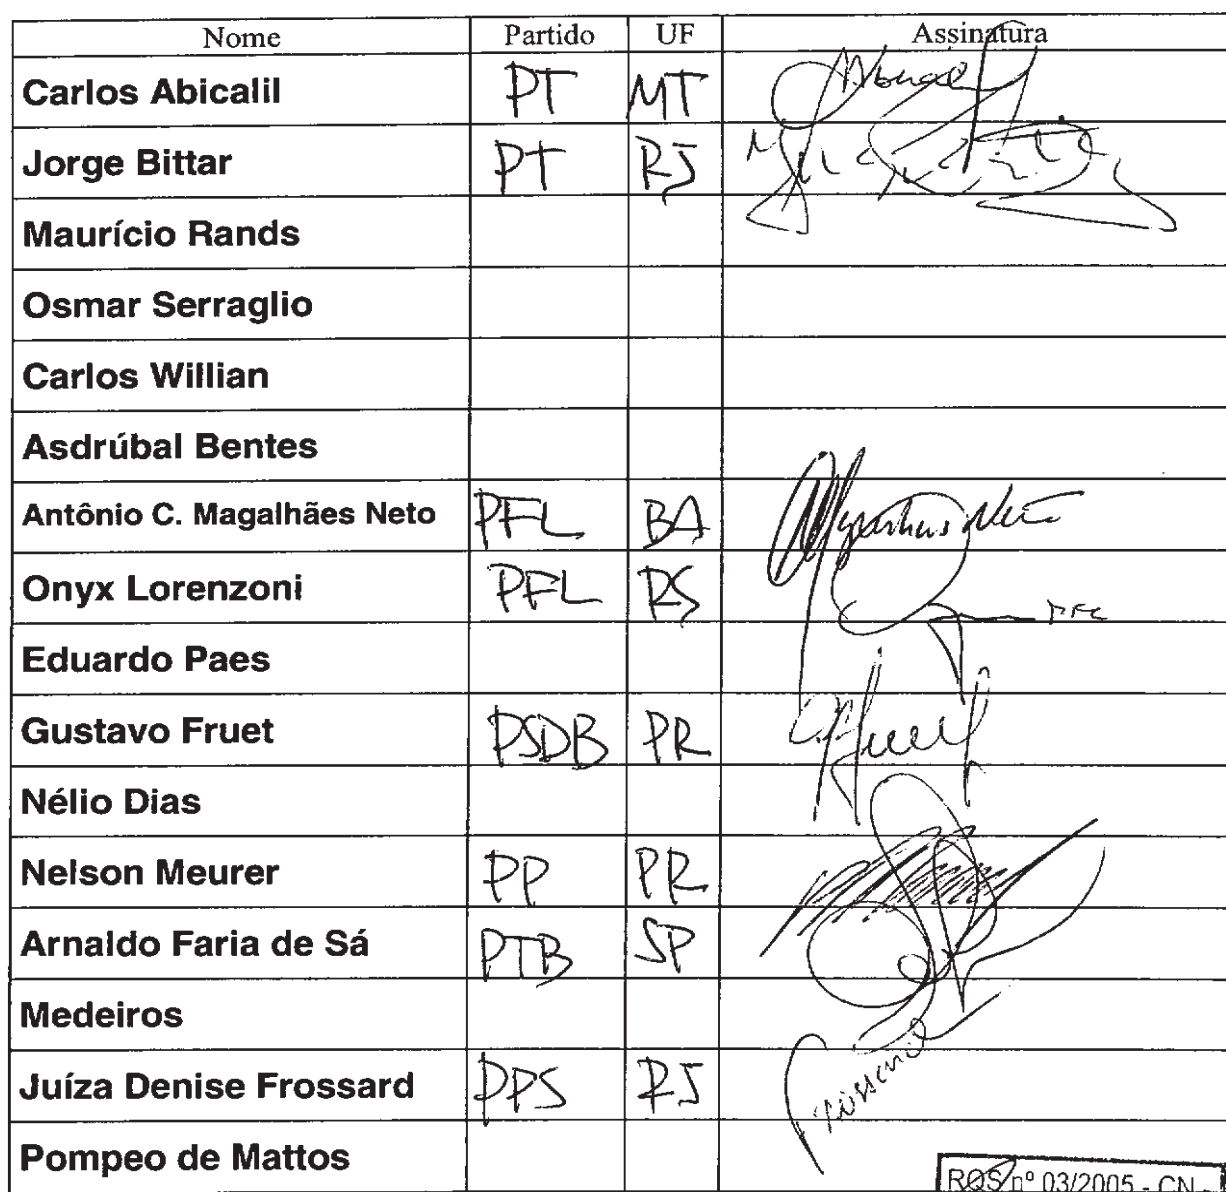 Nome Partido UF Assinatura
Carlos Abicalil PT MT
Jorge Bittar PT RJ
Maurício Rands
Osmar Serraglio
Carlos Willian
Asdrúbal Bentes
Antônio C. Magalhães Neto PFL BA Magalhães Neto
Onyx Lorenzoni PFL RS PFL
Eduardo Paes
Gustavo Fruet PSDB PR Fruet
Nélio Dias
Nelson Meurer PP PR
Arnaldo Faria de Sá PTB SP
Medeiros
Juíza Denise Frossard PPS RJ Frossard
Pompeo de Mattos
RQS nº 03/2005 - CN -